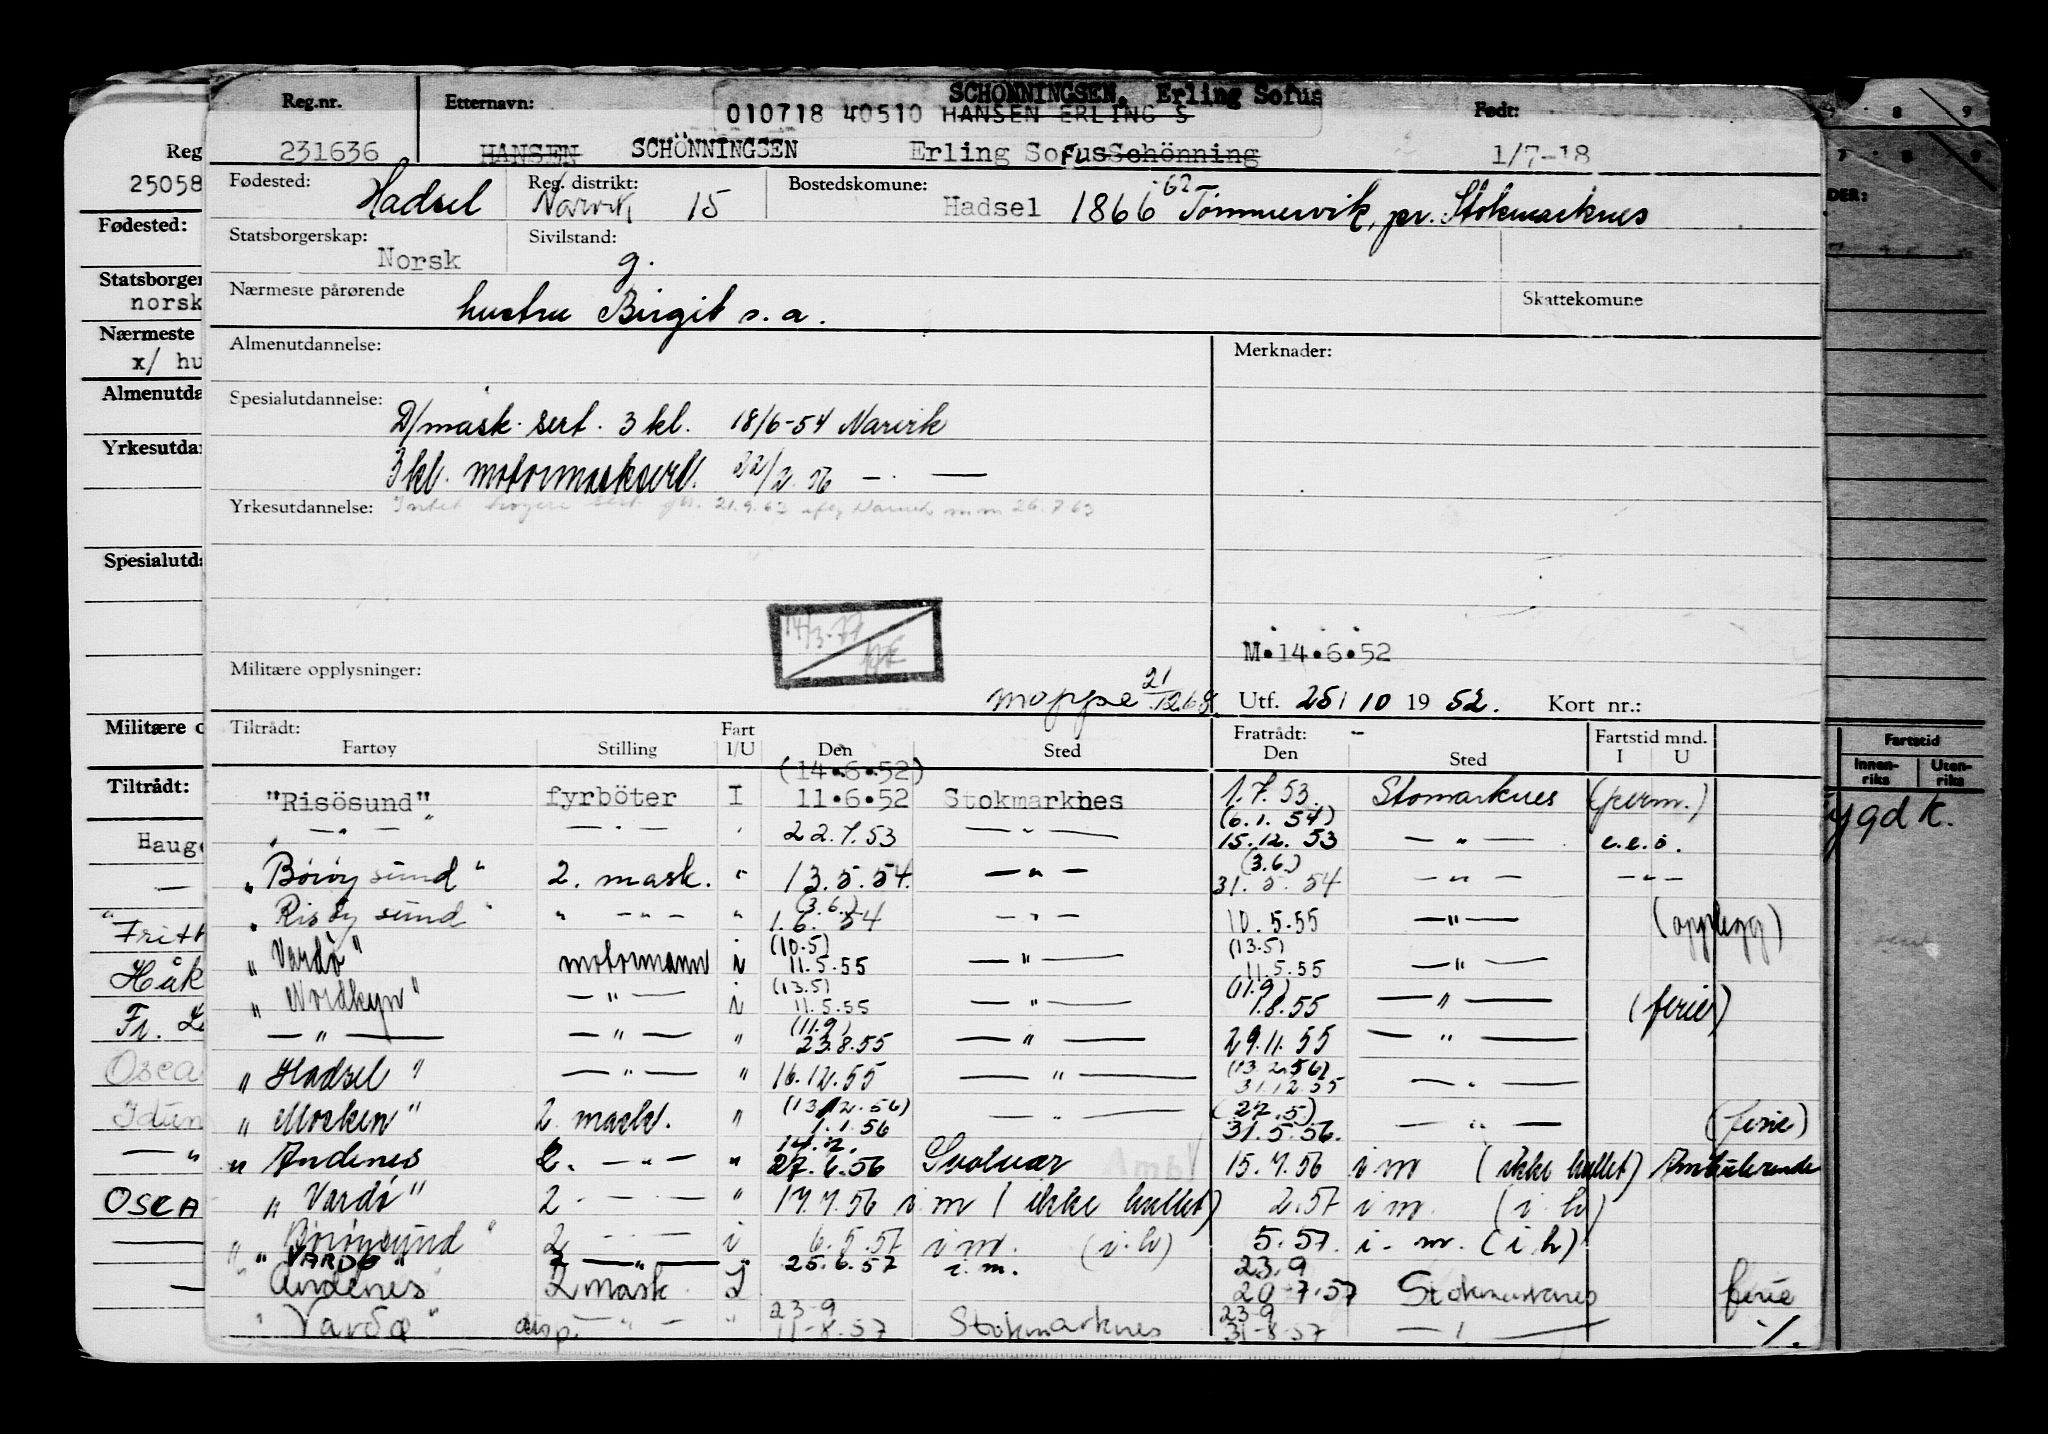 SCHÖNNINGSEN, Erling Sofus
Reg.nr. Etternavn: 010718 40510 HANSEN ERLING S Født:
231636 HANSEN SCHÖNNINGSEN Erling Sofus Schönning 1/7-18
Fødested: Hadsel Reg. distrikt: Narvik 15 Bostedskomune: Hadsel 1866 62 Tømmervik, pr. Stokmarknes
Statsborgerskap: Norsk Sivilstand: g.
Nærmeste pårørende hustru Birgit s.a. Skattekomune
Almenutdannelse: Merknader:
Spesialutdannelse: D/mask. sert. 3 kl. 18/6-54 Narvik
3 kl. motormasksert. 22/2.56 — . —
Yrkesutdannelse: Intet høyere sert. 21.9.63 Narvik 26.7.63
14/3-77
M.14.6.52
Militære opplysninger: moppe 21/12.68. Utf. 25/10 1952. Kort nr.:
Tiltrådt: Fart Fratrådt: Fartstid mnd.
Fartøy Stilling I/U Den Sted Den Sted I U
(14.6.52)
"Risösund" fyrböter I 11.6.52 Stokmarknes 1.7.53. Stomarknes (perm.)
(6.1.54)
— " — — " — 22.7.53 — " — 15.12.53 — " — e.e.ö.
(3.6.)
"Börøysund" 2. mask. " 13.5.54. — " — 31.5.54 — " — — " —
(3.6.)
"Risøysund" " — " — " 1.6.54 — " — 10.5.55 — " — (opplegg)
(10.5) (13.5)
"Vardö" motormann i 11.5.55 — " — 11.5.55 — " —
(13.5) (11.9)
"Nordkyn" — " — i 11.5.55 — " — 1.8.55 — " — (ferie)
(11.9)
— " — — " — " 23.8.55 — " — 29.11.55 — " —
(13.2.56)
"Hadsel" — " — " 16.12.55 — " — 31.12.55 — " —
(13.2.56) (27.5)
"Mosken" 2. mask. " 1.1.56 — " — 31.5.56. — " — (ferie)
"Andenes 2. — " — " 27.6.56 Svolvær 15.7.56 i m (ikke hallet) Ambulerende
"Vardö" 2 — " — " 17.7.56 i m (ikke hallet) 2.57 i m. (i.h)
"Börøysund" 2 — " — i 6.5.57 i m. (i.h) 5.57. i. m. (i h)
"VARDØ" 2 — " — " 25.6.57 i.m. 23.9
Andenes 2 mask. I 20-7.57 Stokmarknes ferie
23-9 23-9
"Vardø" disp. — " — " 11-8.57 Stokmarknes 31-8-57 — " — ./.
Reg
25058
Fødested:
Statsborger
norsk
Nærmeste
x/ hu
Almenutda
Yrkesutda
Spesialutda
Militære o
Tiltrådt:
Hauge
"Frith
Håk
Fr.
Osca
Idun
— "
OSCA
7 8 9
DER:
Fartstid
Innen-riks Uten-riks
ygd k.